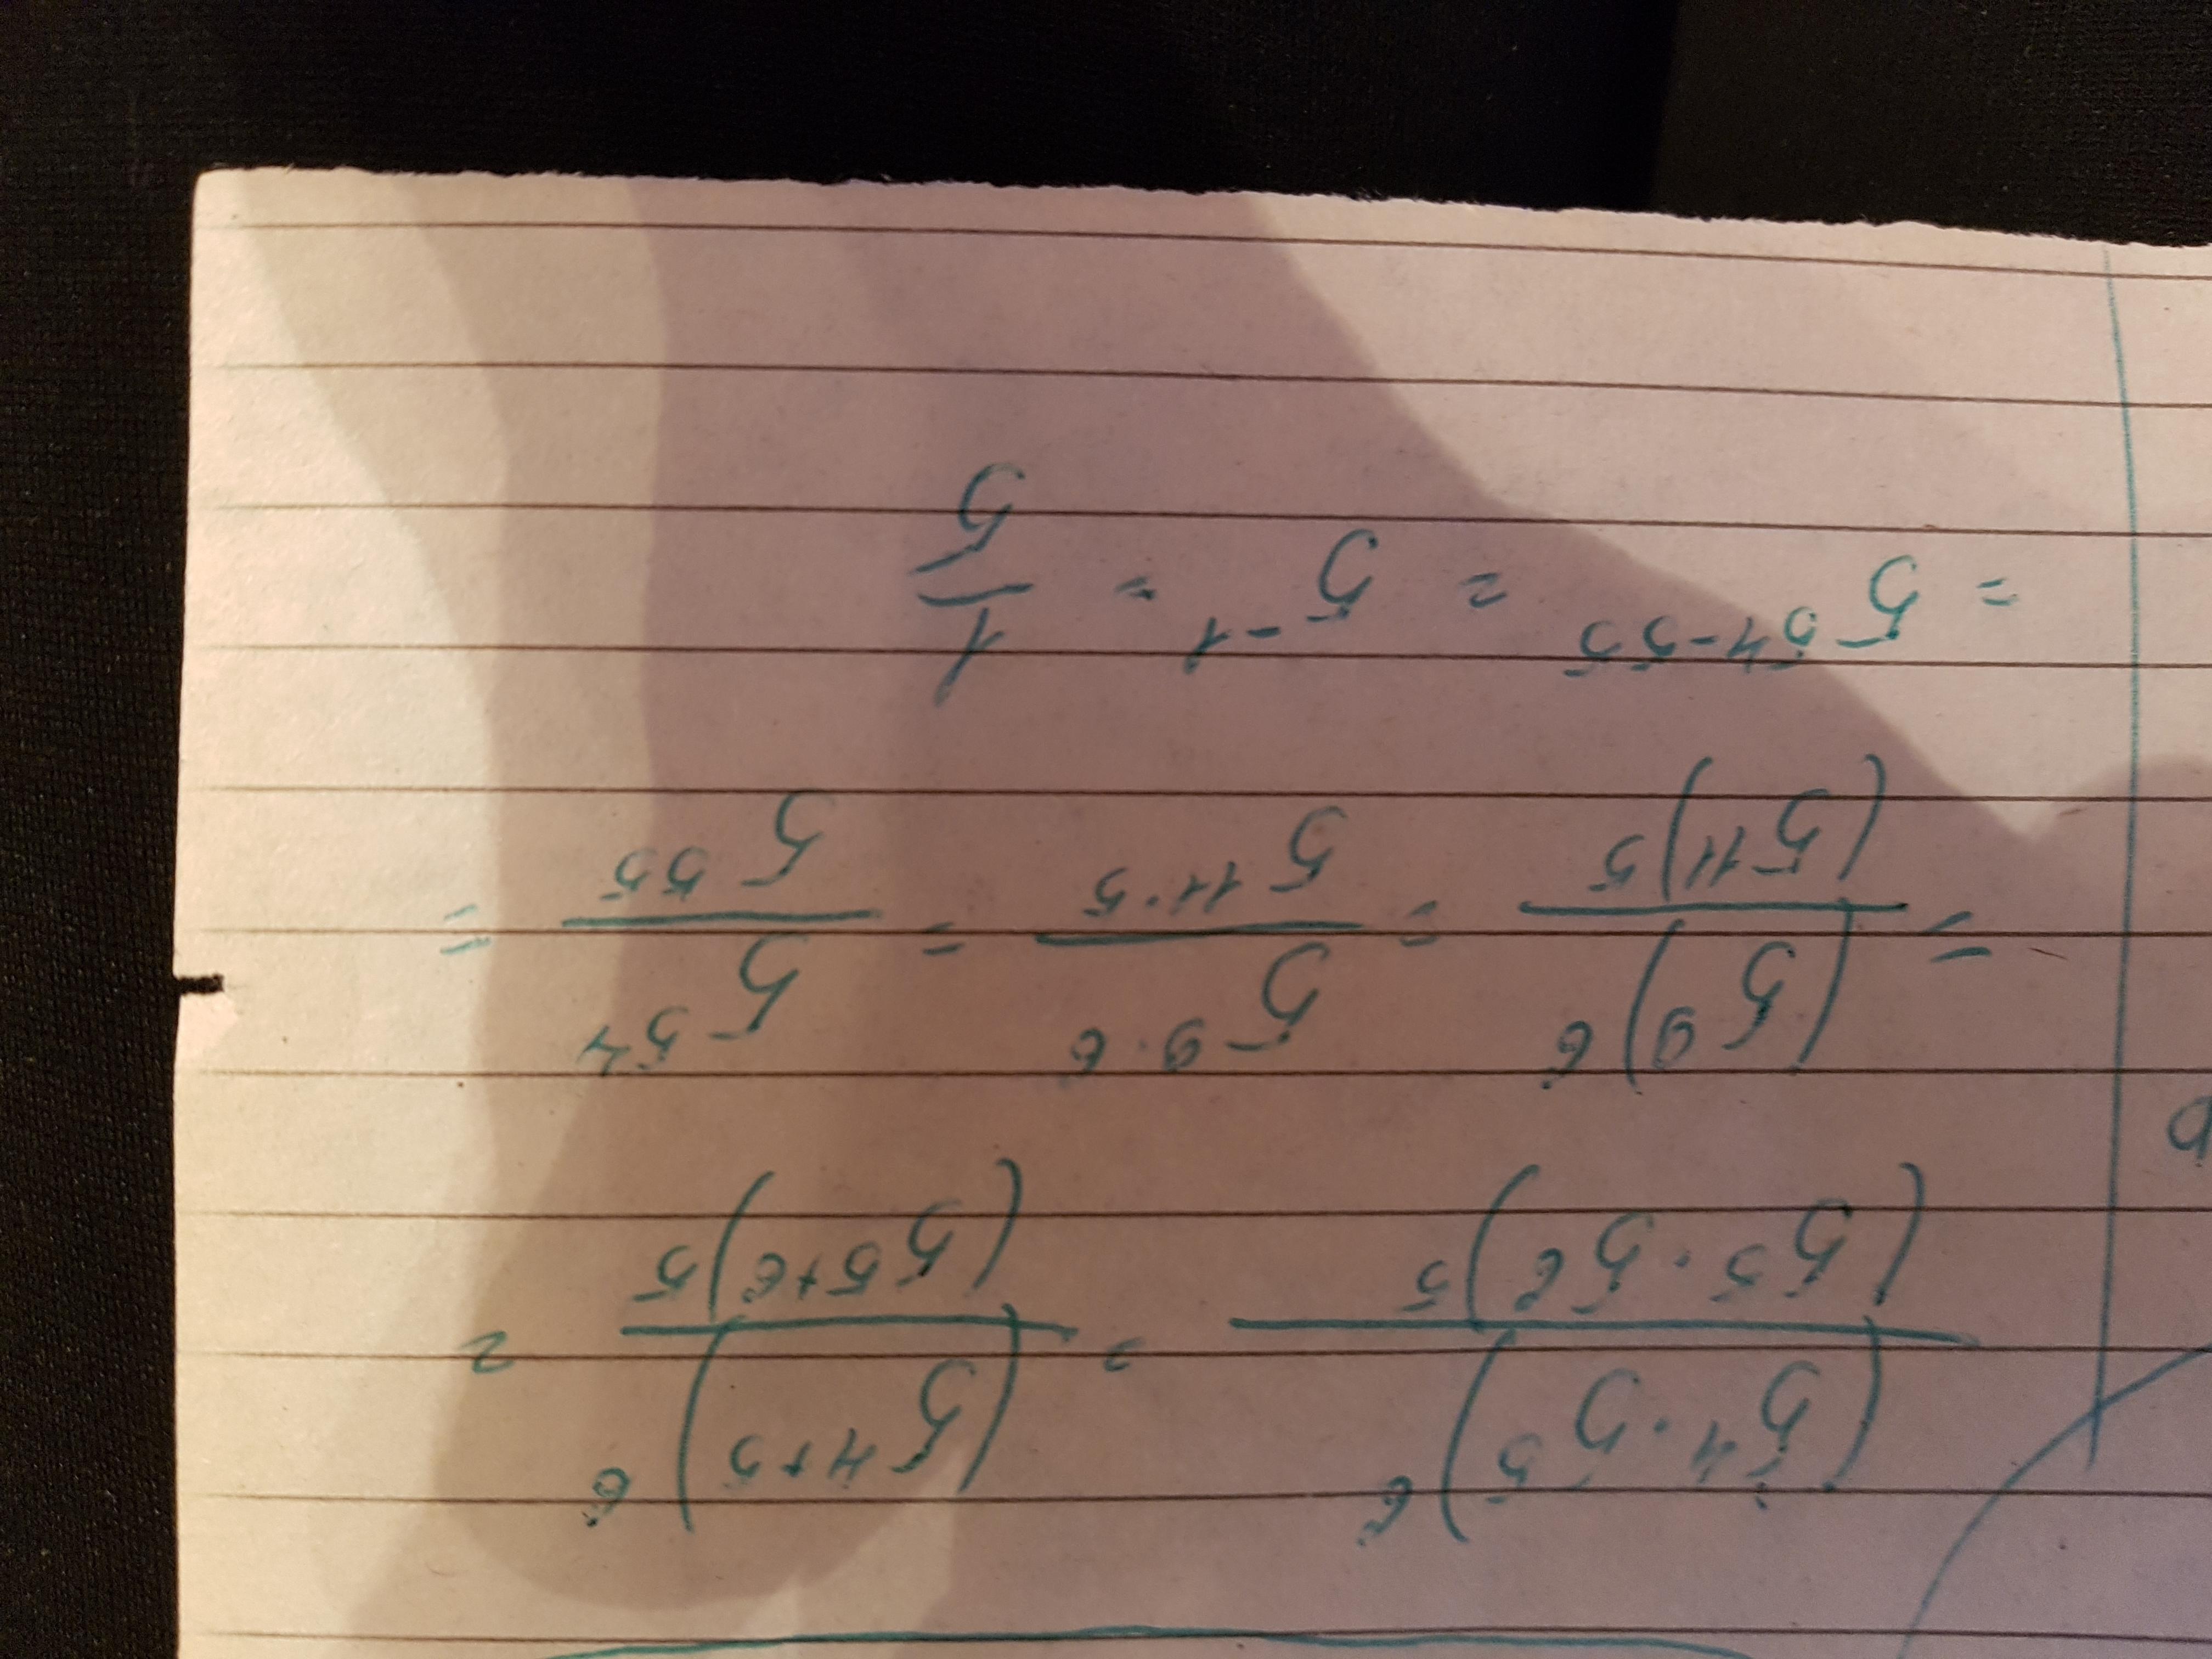 (5^4·5^5)^6/(5^5·5^6)^5 = (5^(4+5))^6/(5^(5+6))^5 =
= (5^9)^6/(5^11)^5 = 5^(9·6)/5^(11·5) = 5^54/5^55 =
= 5^(54-55) = 5^(-1) = 1/5